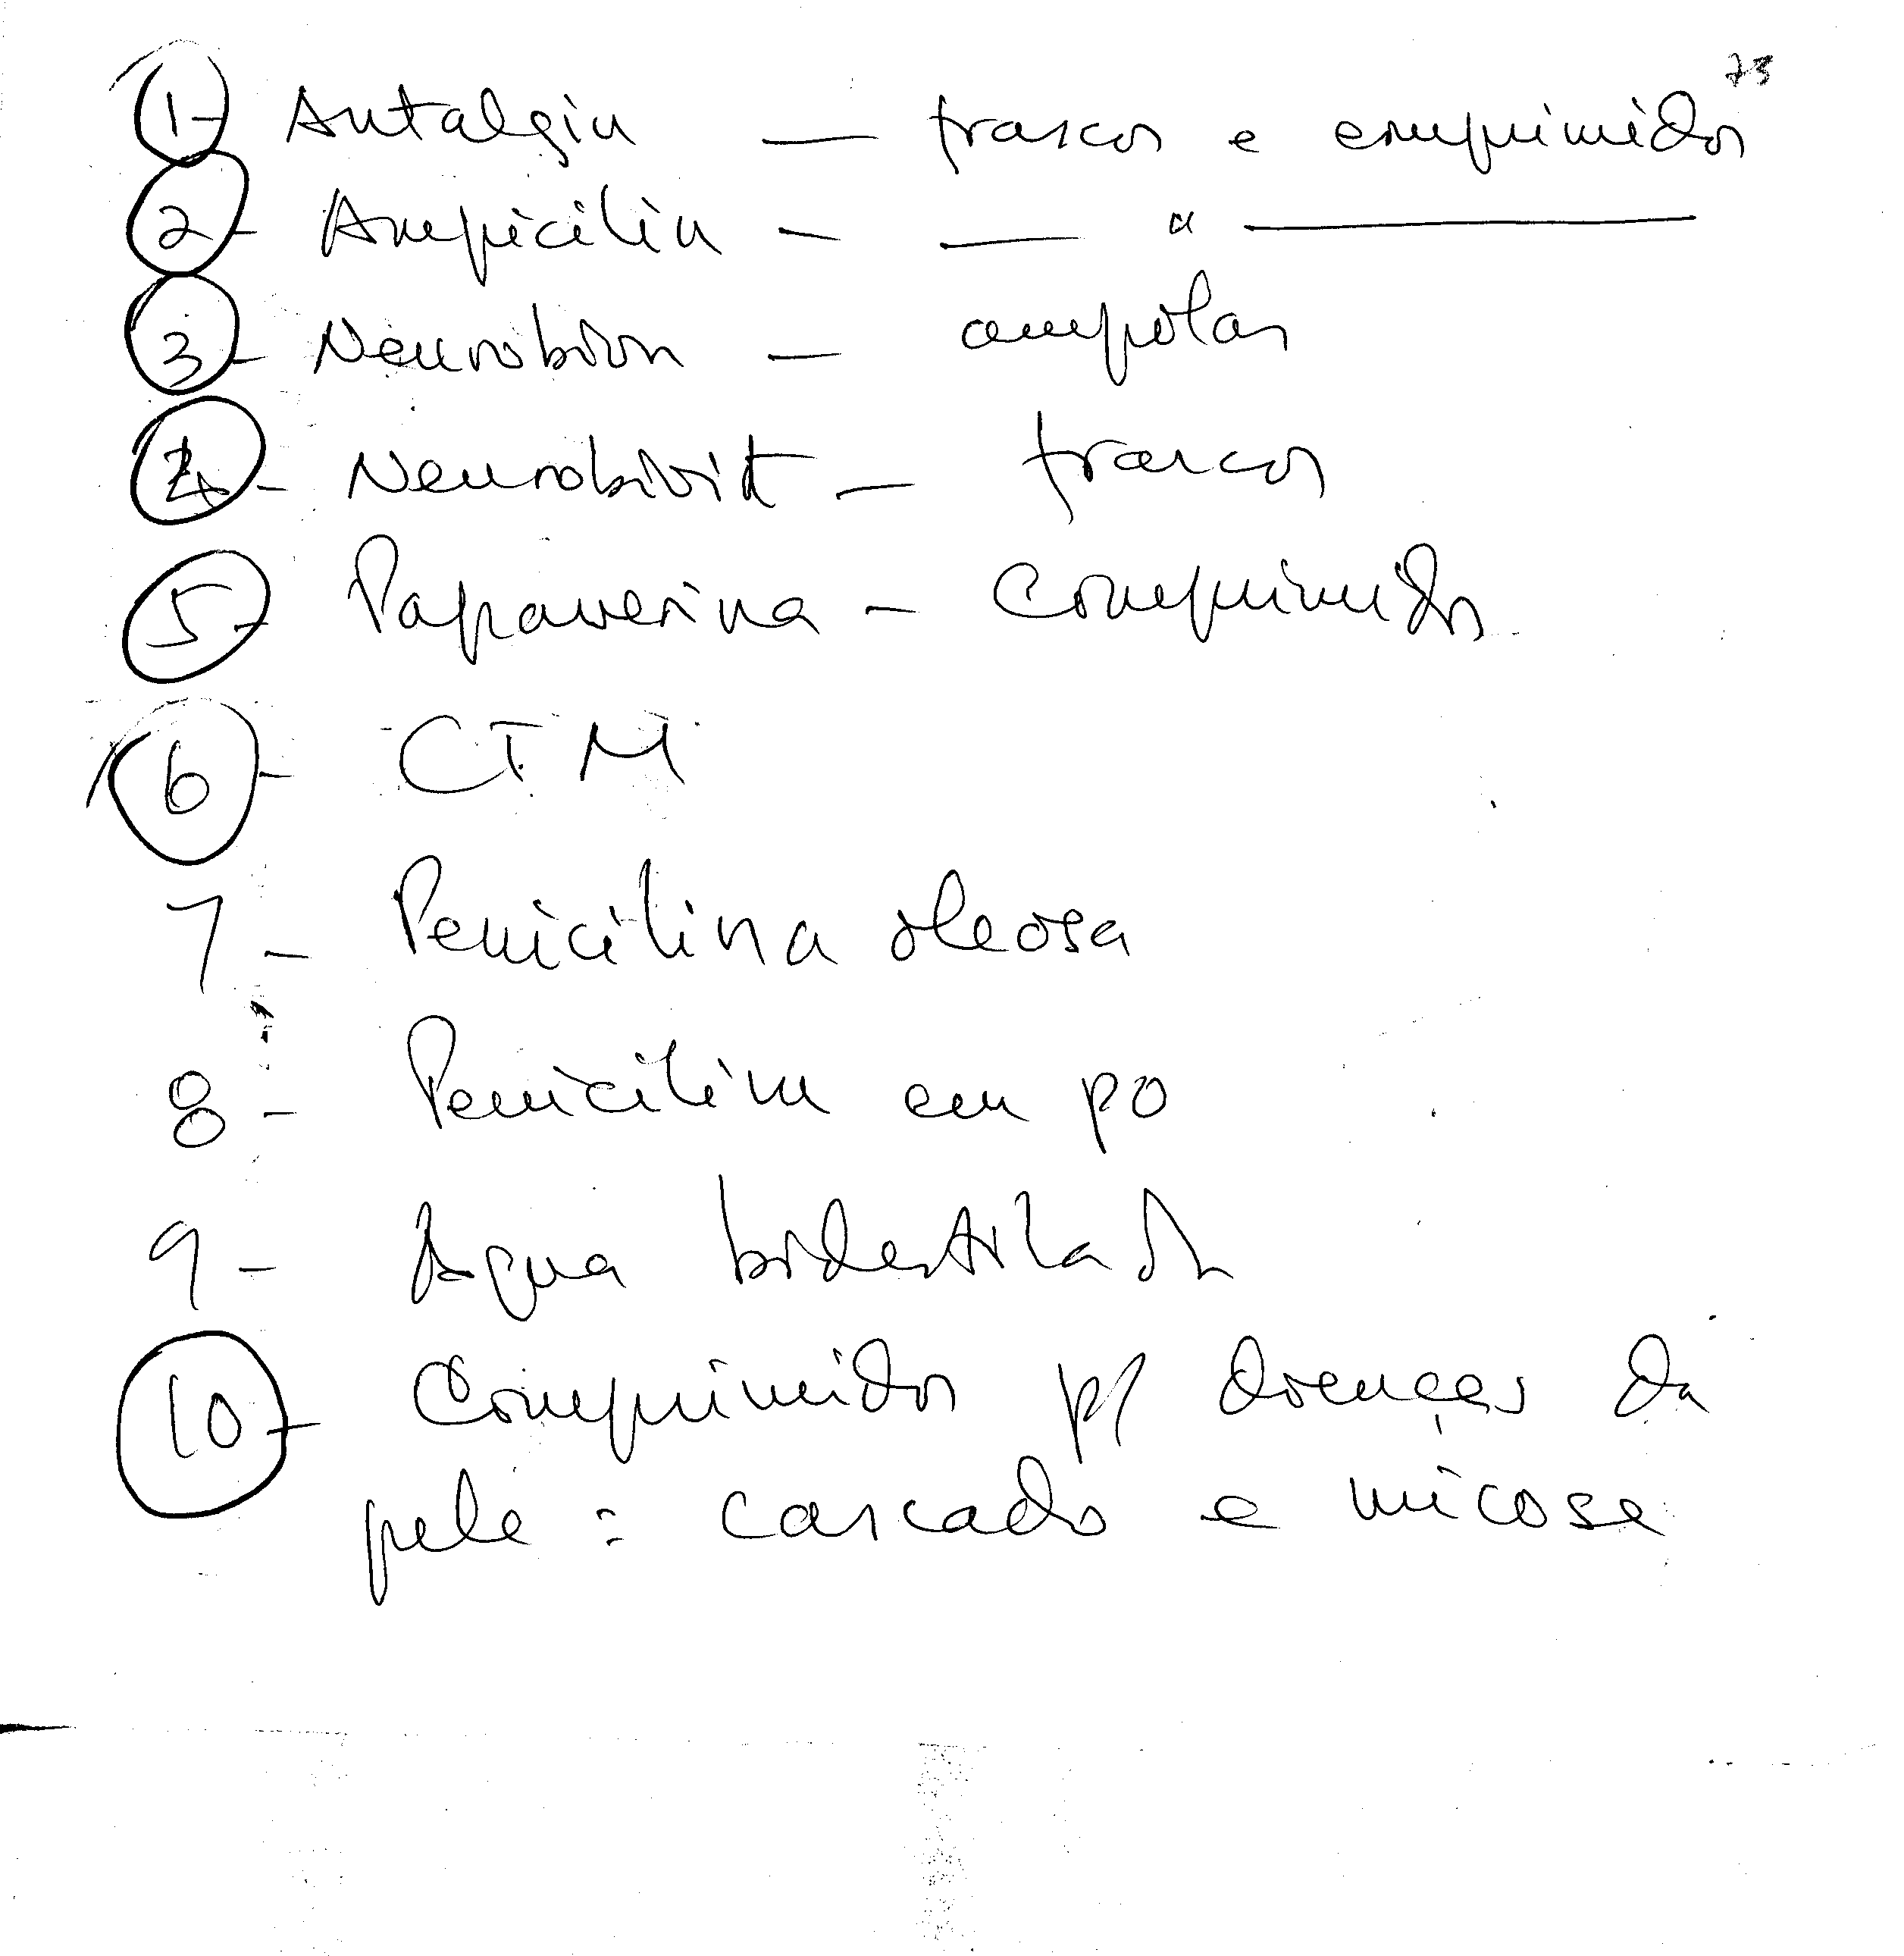 73
1- Antalgin — frascos e comprimidos
2- Ampicilin - — " —
3- Neurobion - ampolas
4- Neurobivit - frascos
5- Papaverina - Comprimidos
6- CTM
7- Penicilina oleosa
8- Penicilina em po
9- Agua bidestilada
10- Comprimidos p/ doenças da
pele : cascado e micose